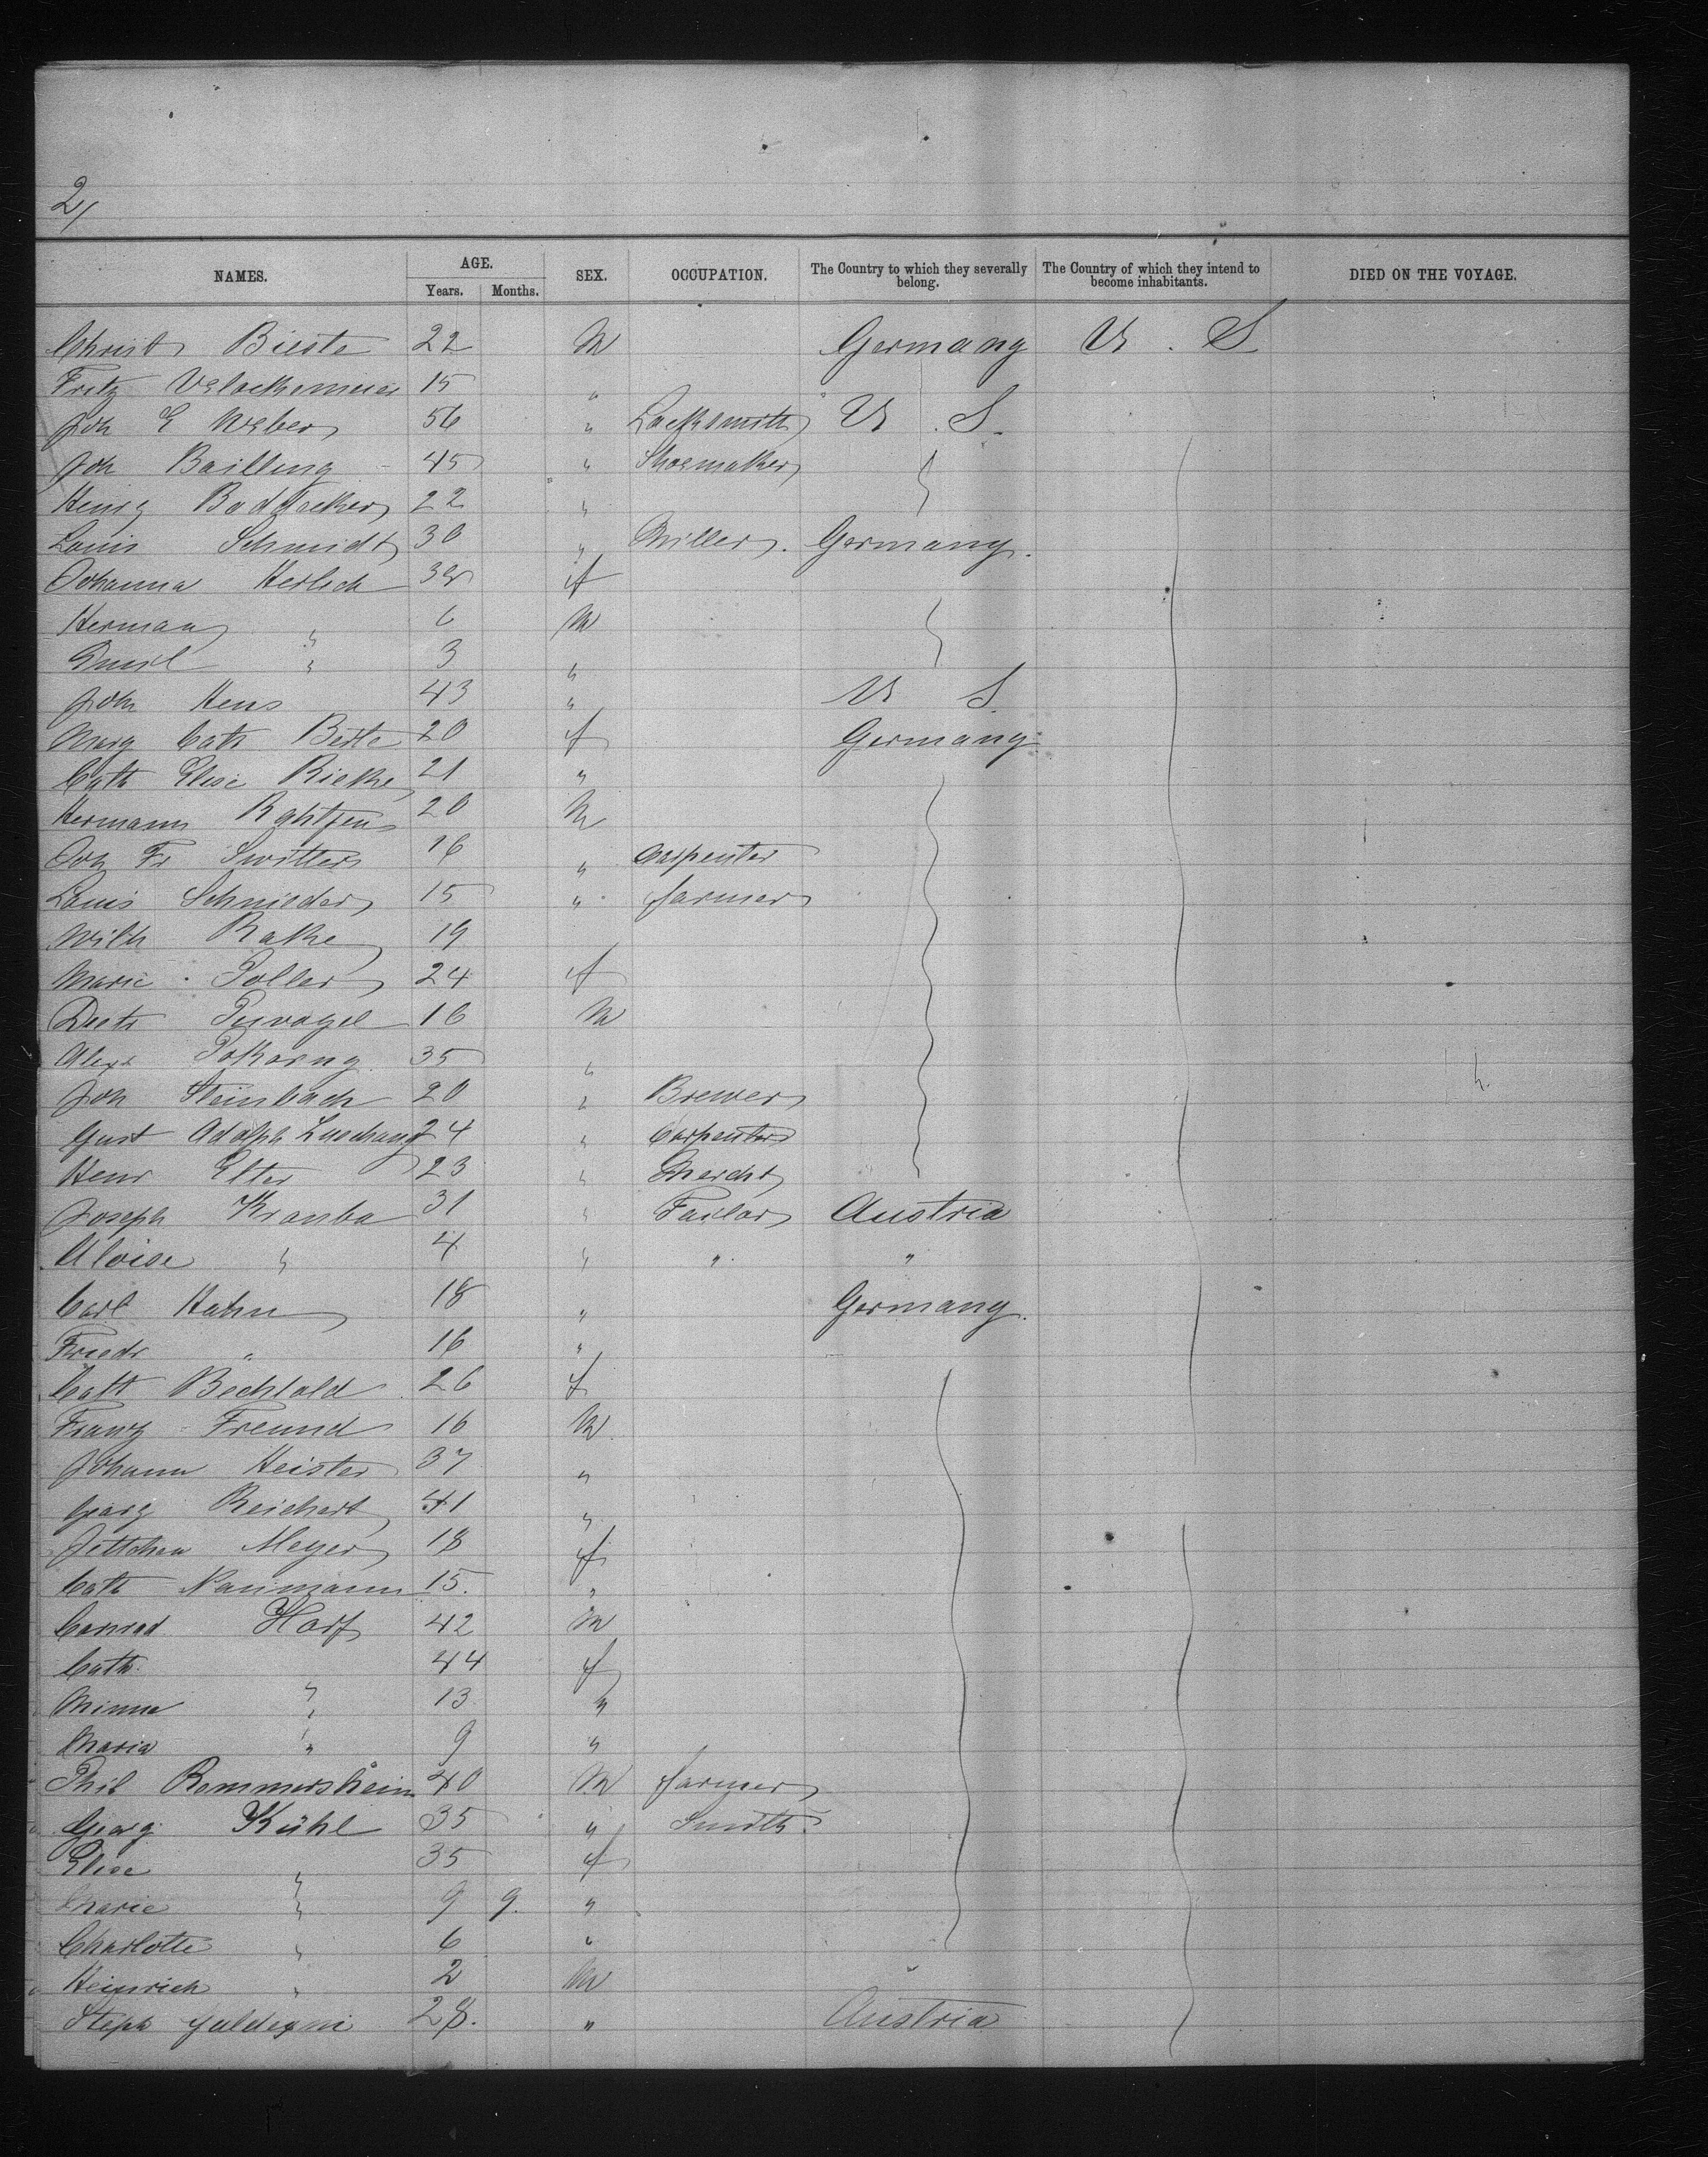 2/
NAMES. AGE. SEX. OCCUPATION. The Country to which they severally belong. The Country of which they intend to become inhabitants. DIED ON THE VOYAGE.
Years. Months.
Christ Bieste 22 M Germany U. S
Fritz 15 "
Joh E Weber 56 " Locksmith U. S.
Joh Bailling 45 " Shoemaker
Henry Baddacker 22 "
Louis Schmidt 30 " Miller. Germany.
Johanna Herlich f
Herman " 6 M
Emil " 3 "
John Hens 43 " U S.
Marg Cath Beste 20 f Germany
Cath Elise Rieke 21 "
Hermann 20 M
Joh Fr Switters 16 " Carpenter
Louis Schnieder 15 " farmer
Wilh Rake 19
Marie Poller 24 f
Dietr Puvogel 16 M
Alex Pokorny 35 "
Joh Steinbach 20 " Brewer
Gust Adolph 24 " Carpenter
Henr Elter 23 " Mercht
Joseph Kranba 31 " Tailor Austria
Aloise " 4 " " "
Carl Hahn 18 " Germany.
Friedr " 16 "
Cath Bechtold 26 f
Franz Freund 16 M
Johann Heister 37 "
Georg Reichert 41 "
Jettchen Meyer 18 f
Cath Naumann 15. "
Conrad Horf 42 M
Cath. " 44 f
Minna " 13 "
Maria " 9 "
Phil Rommersheim 40 M farmer
Georg Kühl 35 " Smith
Elise " 35 f
Marie " 9 9. "
Charlotte " 6 "
Heinrich " 2 M
Steph 28. " Austria